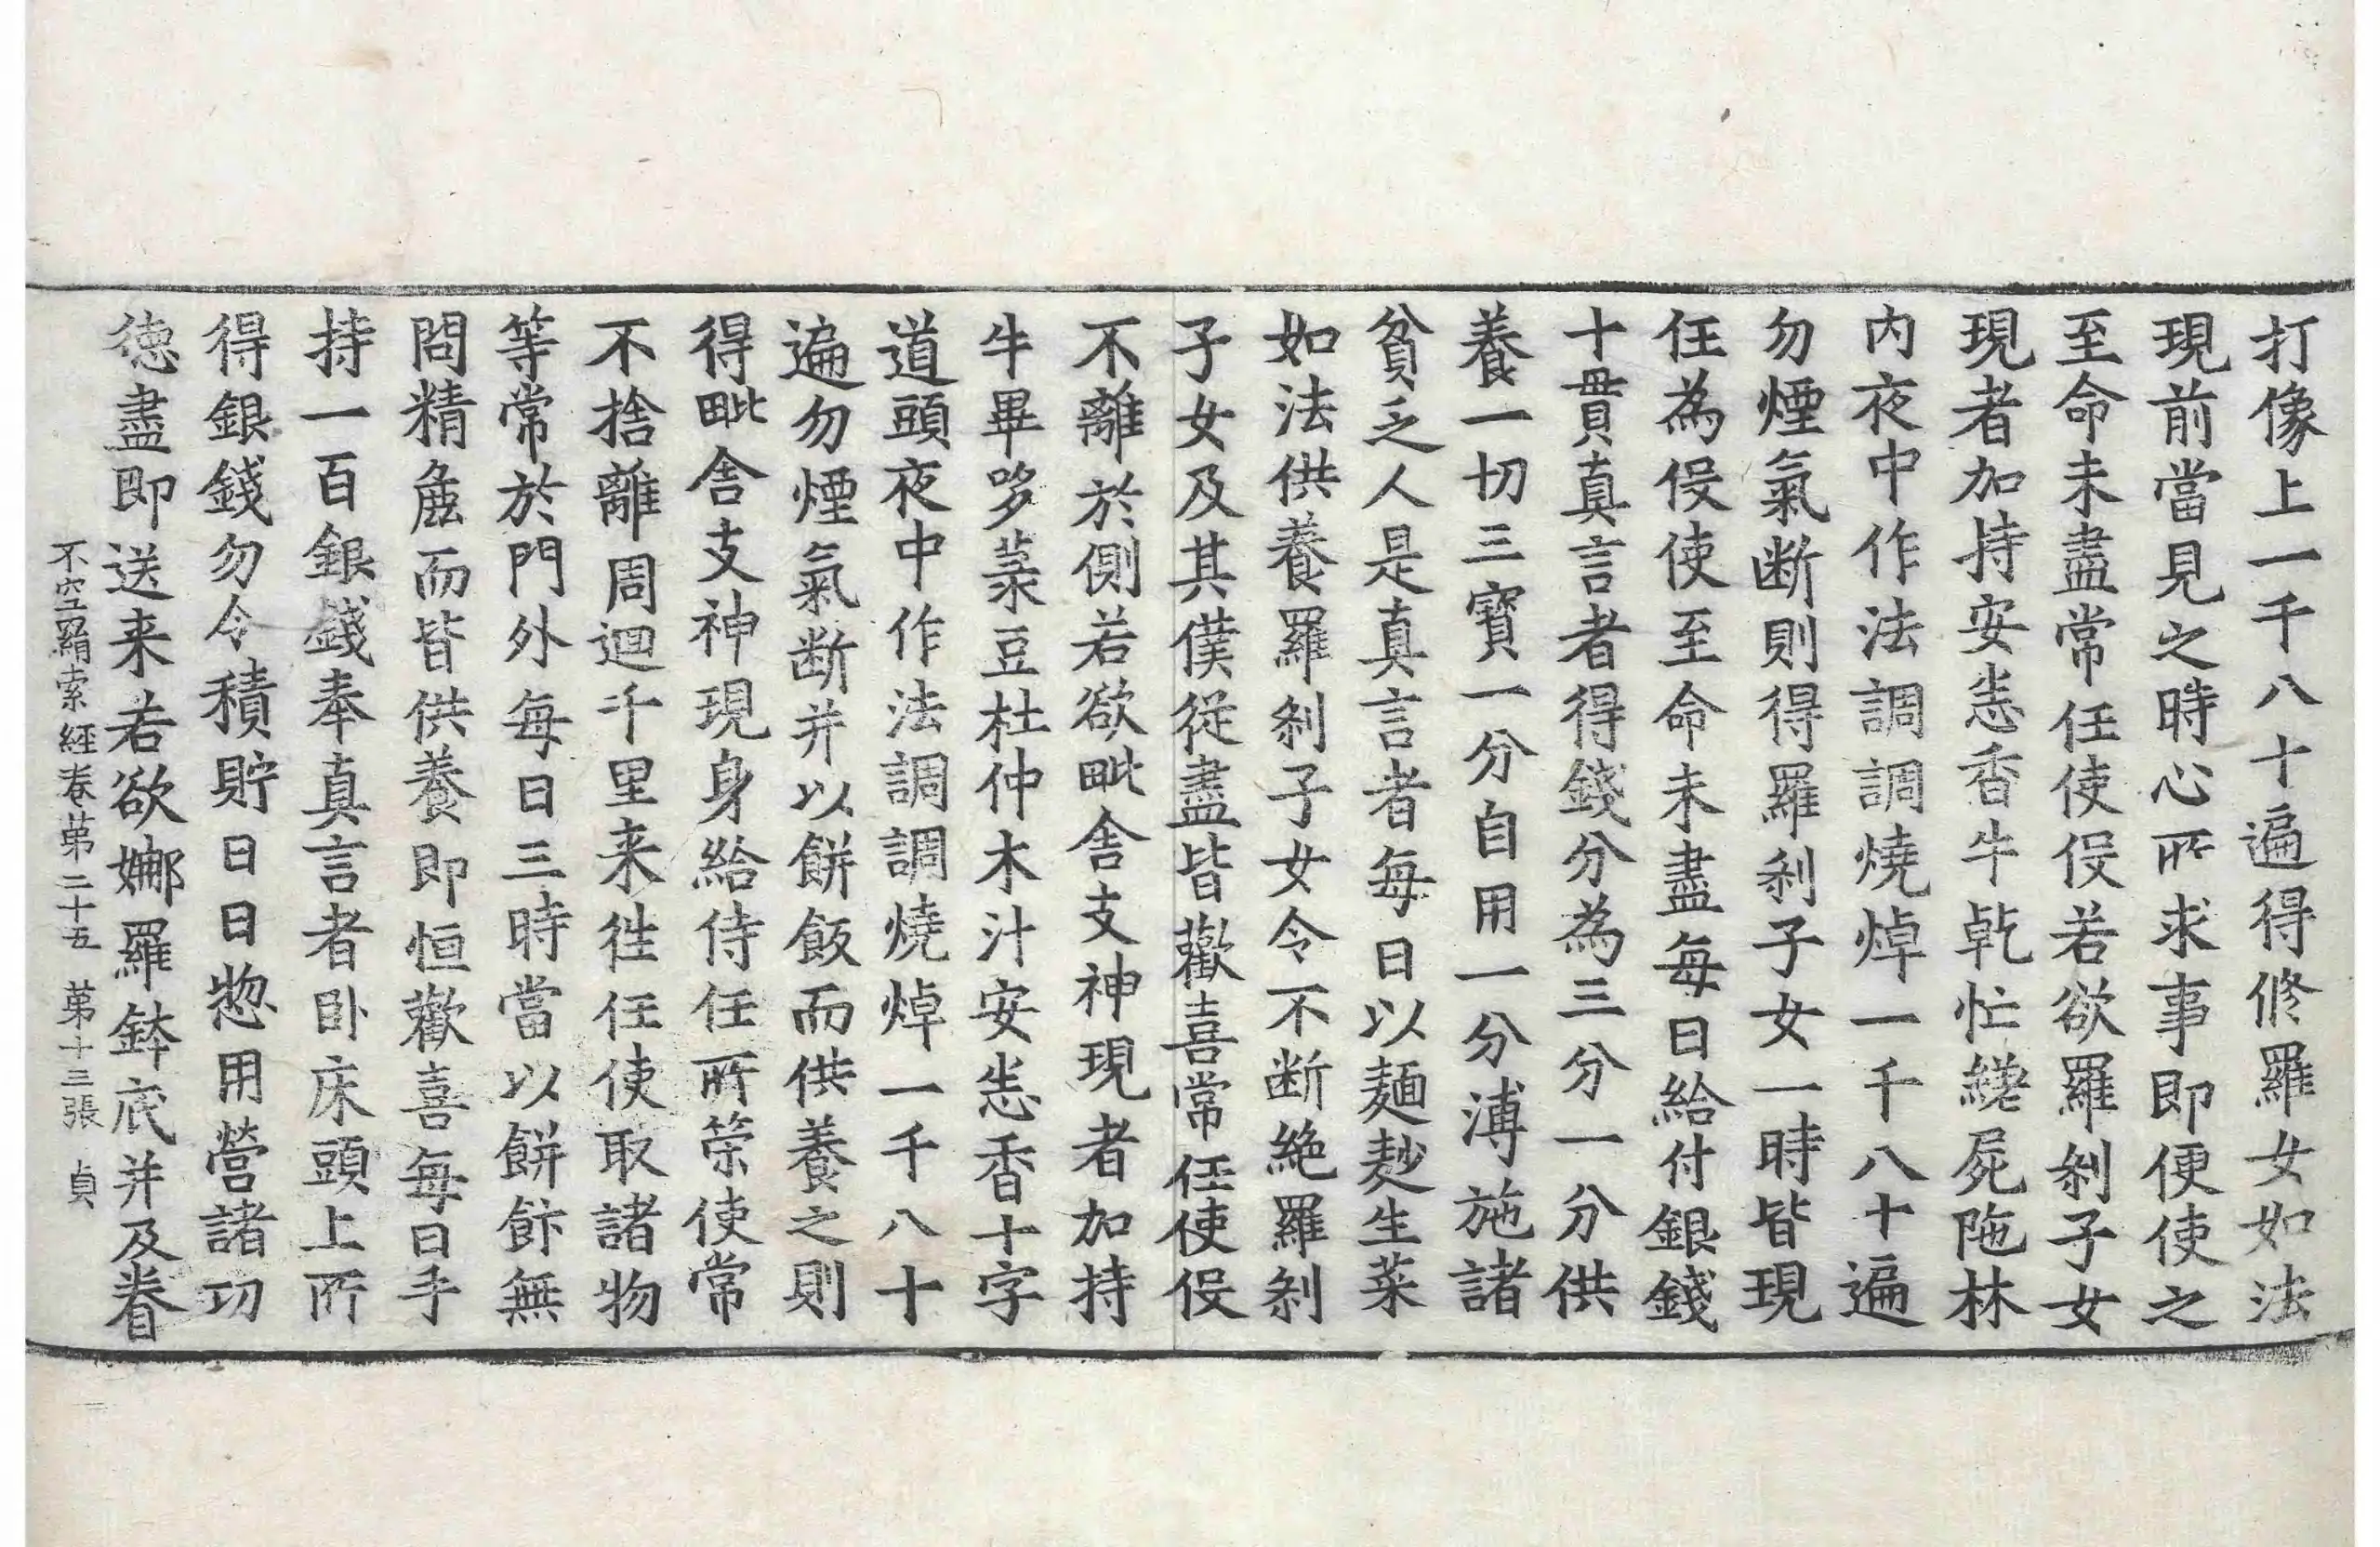 打像上一千八十遍得修羅女如法
現前當見之時心所求事即便使之
至命未盡常任使伇若欲羅剎子女
現者加持安悉香牛乾忙緂屍陁林
内夜中作法調調燒焯一千八十遍
勿煙氣断則得羅剎子女一時皆現
任為伇使至命未盡每日給付銀錢
十貫真言者得錢分為三分一分供
養一切三寶一分自用一分溥施諸
貧乏人是真言者每日以麺麨生菜
如法供養羅剎子女令不断絶羅剎
子女及其僕従盡皆歡喜常任使伇
不離於側若欲毗舍支神現者加持
牛畢哆菉豆杜仲木汁安悉香十字
道頭夜中作法調調燒焯一千八十
遍勿煙氣断并以餅飯而供養之則
得毗舍支神現身給侍任所策使常
不捨離周迴千里来徃任使取諸物
等常於門外每日三時當以餅飰無
問精麁而皆供養即恒歡喜每日手
持一百銀錢奉真言者卧床頭上所
得銀錢勿令積貯日日惣用營諸功
徳盡即送来若欲娜羅鉢底并及眷
不空羂索経卷苐二十五　苐十三張　貞